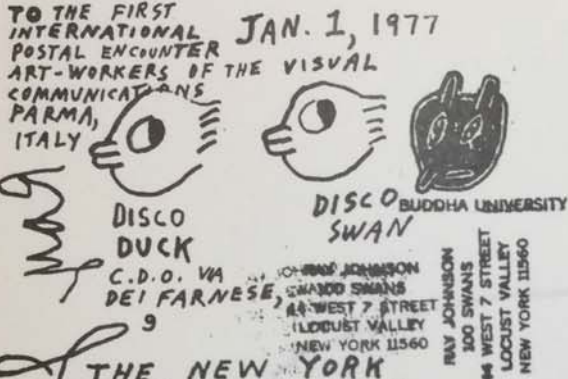 TO THE FIRST
INTERNATIONAL
POSTAL ENCOUNTER
ART-WORKERS OF THE VISUAL
COMMUNICATIONS
PARMA,
ITALY
JAN. 1, 1977
DISCO
DUCK
C.D.O. VIA
DEI FARNESE,
9
DISCO
SWAN
BUDDHA UNIVERSITY
RAY JOHNSON
100 SWANS
44 WEST 7 STREET
LOCUST VALLEY
NEW YORK 11560
RAY JOHNSON
100 SWANS
44 WEST 7 STREET
LOCUST VALLEY
NEW YORK 11560
THE NEW YORK